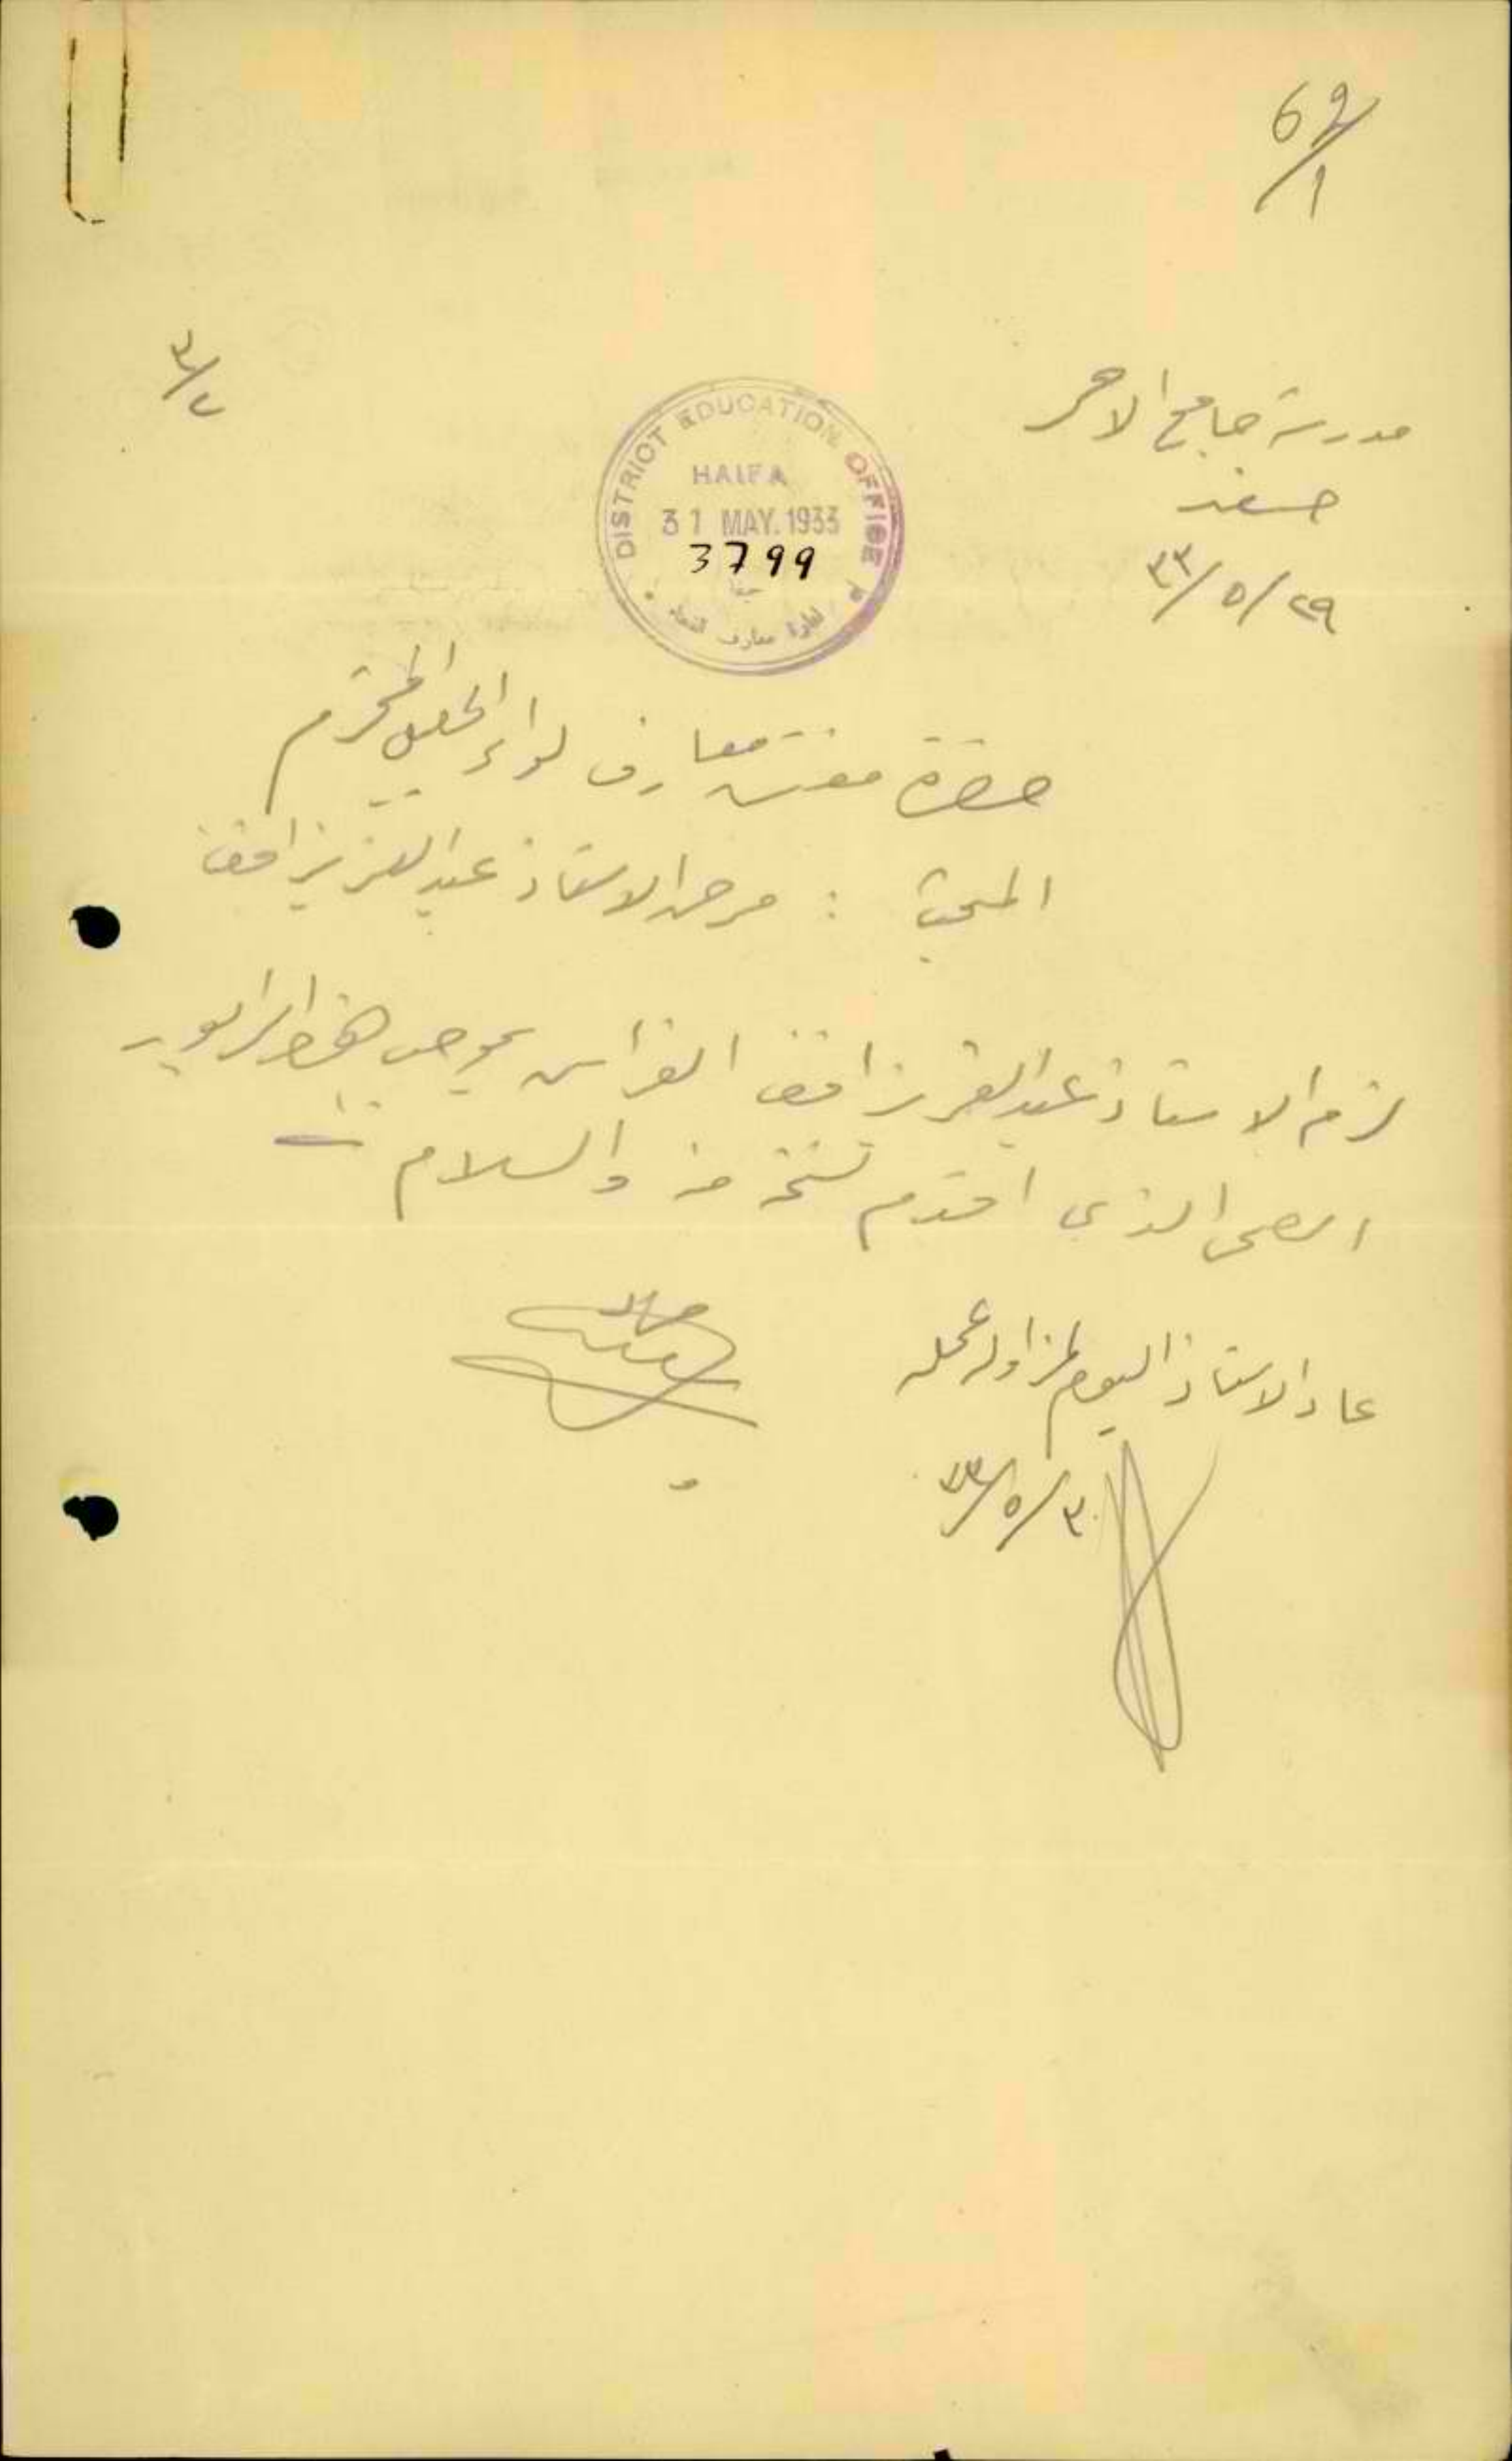 69/1
٣/٢
مدرسة جامع الاحمر
صفد
٢٩/٥/٣٣
DISTRICT EDUCATION OFFICE
HAIFA
31 MAY. 1933
3799
حيفا
حضرة مفتش معارف لواء الجليل المحترم
المبحث : مرض الاستاذ عبد العزيز افندي
لزم الاستاذ عبد العزيز افندي الفراش بموجب هذا الرابور
الصحي الذي اقدم نسخة منه والسلام
عاد الاستاذ اليوم لمزاولة عمله
٣٠/٥/٣٣